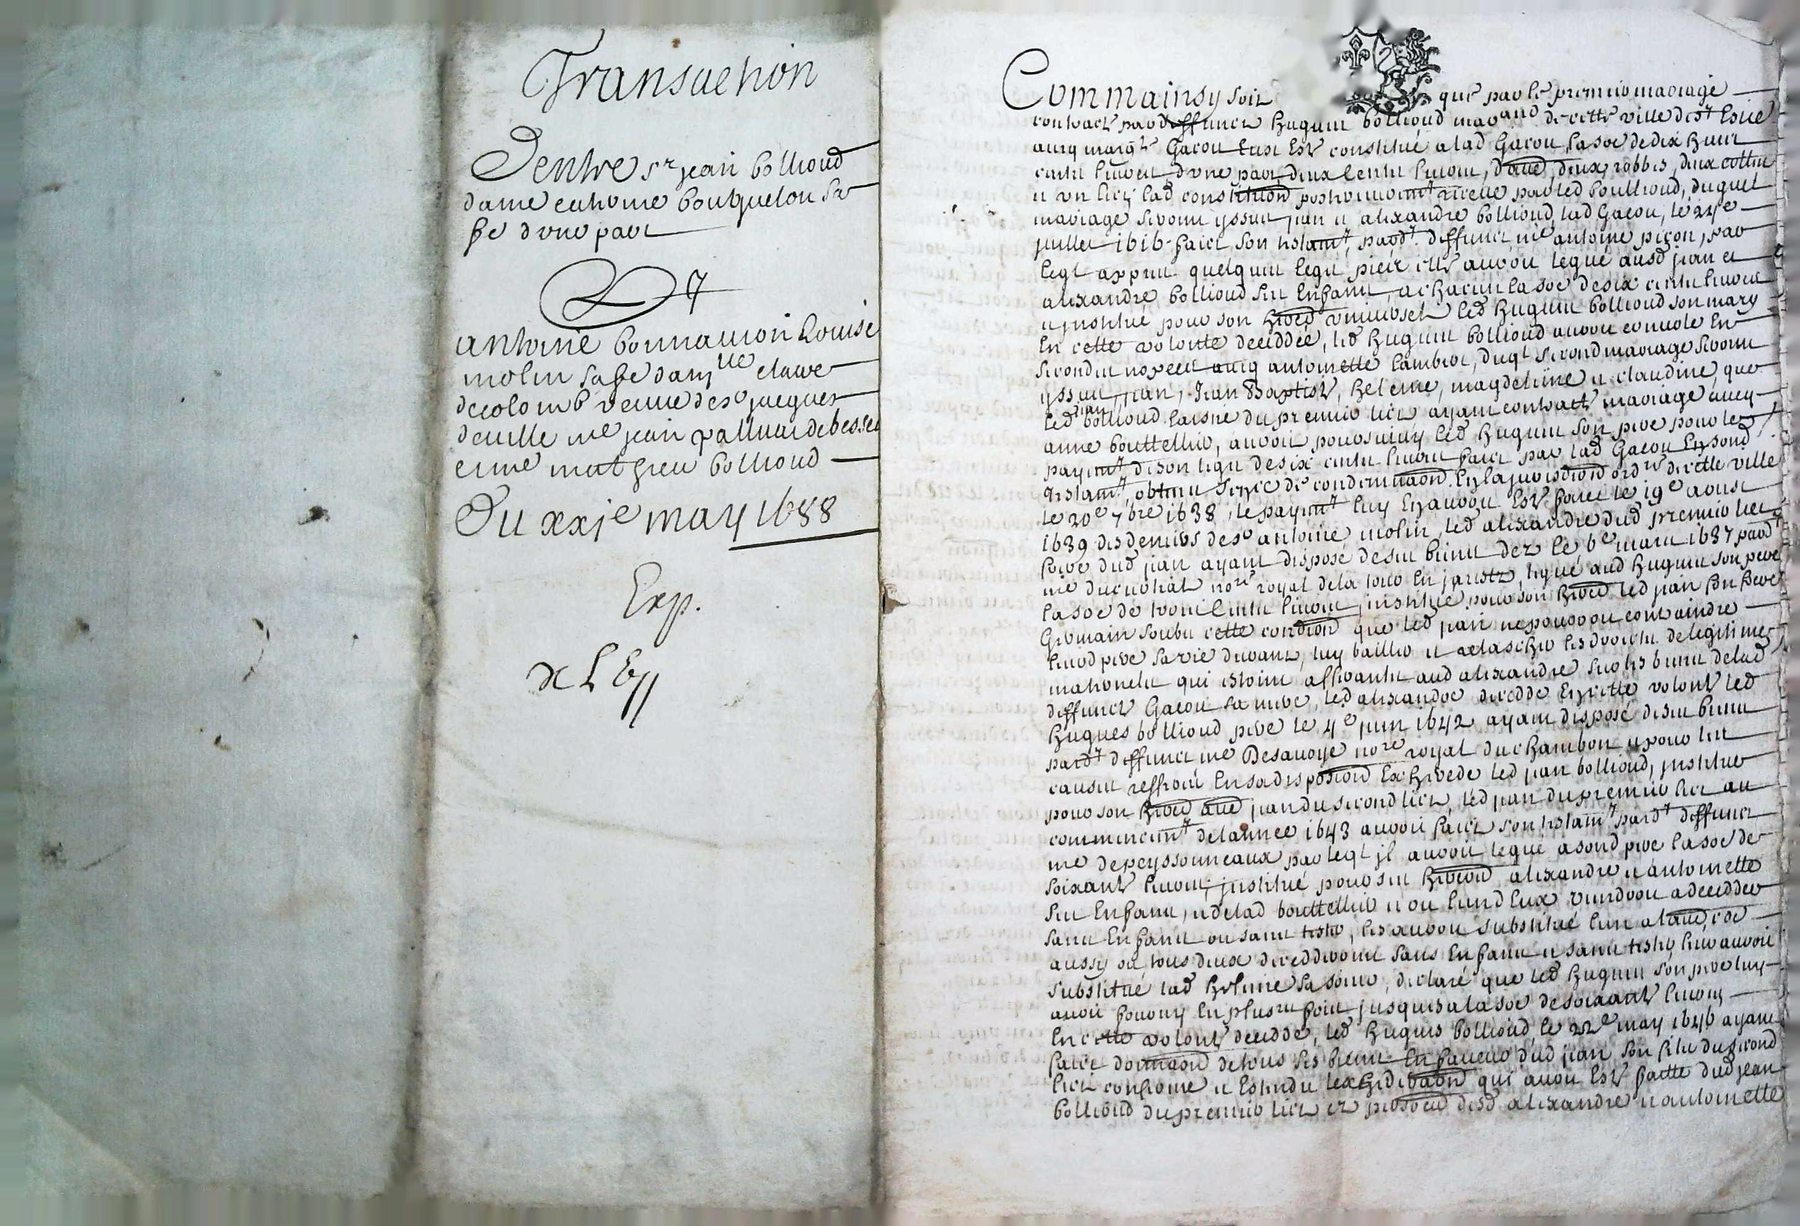 Transaction
D'entre sr jean bollioud
dame catherine bourguelon sa
fe d'une part
Et
antoine bonnavion Louise
molin sa fe dam.lle claire
decolomb veuve de sr jacques
deville me jean palluat de besset
et me mathieu bollioud
Du xxje may 1688
Exp.
Comme ainsy soit que par le premier mariage
contract par deffunct huguin bollioud marchand de cette ville dest estie
avecq marg.te Gacou eust este constitué a lad Gacou la soe de dix huict
cents livres d'une part deux cents livres, d'autre, deux robbes, deux cottes
et un lict, lad constitution receue par led boullioud, duquel
mariage seroient yssus jean et alixandre bollioud, lad Gacou, le
juillet 1616 faict son testamt pard.t deffunct me antoine pizon, par
leql appert quelques legats pieux elle avoir legué ausd jean et
alixandre bollioud ses enfants, a chacun la soe de six cents livres
et institué pour son heред universel led huguin bollioud son mary
en cette volonté deceddée, led huguin bollioud avoir convolé en
secondes nopces avecq antoinette lambert, duql second mariage seroient
yssus jean, jean Baptiste, heleine, magdeleine et claudine, que
led jean bollioud laisné du premier lict ayant contracté mariage avecq
anne bouttellier, avoir poursuivy led huguin son pere pour le
payemt de son legat de six cents livres faict par lad Gacou en sond
testamt, obtenu sentence de condemnation en la jurisdiction ord.re de cette ville
le 20e 7bre 1638, le payemt luy en avoir esté faict le 19e aoust
1639 des deniers de sr antoine molin, led alixandre dud premier lict
frere dud jean ayant disposé de ses biens dez le 6e mars 1637 pard.t
me ducnohal no.re royal de la tour en jaretz, legué aud huguin son pere
la soe de trois cents livres, institué pour son hered led jean son frere
Germain soubs cette condition que led jean ne pourroit contraindre
leurd pere sa vie durant, luy bailler et relascher les droicts de legitimes
maternels qui estoient afferants aud alixandre sur les biens de lad
deffuncte Gacou sa mere, led alixandre decedde en cette volonté led
hugues bollioud pere le 4e juin 1642 ayant disposé de ses biens
pard.t deffunct me Desavoye no.re royal du chambon et pour les
causes reffrain en sa disposition exherede led jean bollioud, institue
pour son hered univ jean du second lict, led jean du premier lict au
commencemt de lannee 1643 avoir faict son testamt pard.t deffunct
me depeyssonneaux par leql il avoir legué a sond pere la soe de
soixante livres, institué pour ses heritiers alixandre et antoinette
ses enfants, et de lad bouttellier et ou l'un d'eux viendroit a decedder
sans enfants ou sans tester, les avoir substitué l'un a lautre, et ou
aussy ou tous deux decedderoient sans enfants et sans tester leur avoir
substitué lad heleine sa soeur, declaré que led huguin son pere luy
avoir fourny en plusrs fois jusques a la soe de soixante livres
en cette volonté deceddé, led hugues bollioud le 22e may 1646 ayant
faict donnation de tous ses biens en faveur dud jean son fils du second
lict confirme et estendu lexheredation qui avoir esté faitte dud jean
bollioud du premier lict et prosteri desd alixandre et antoinette